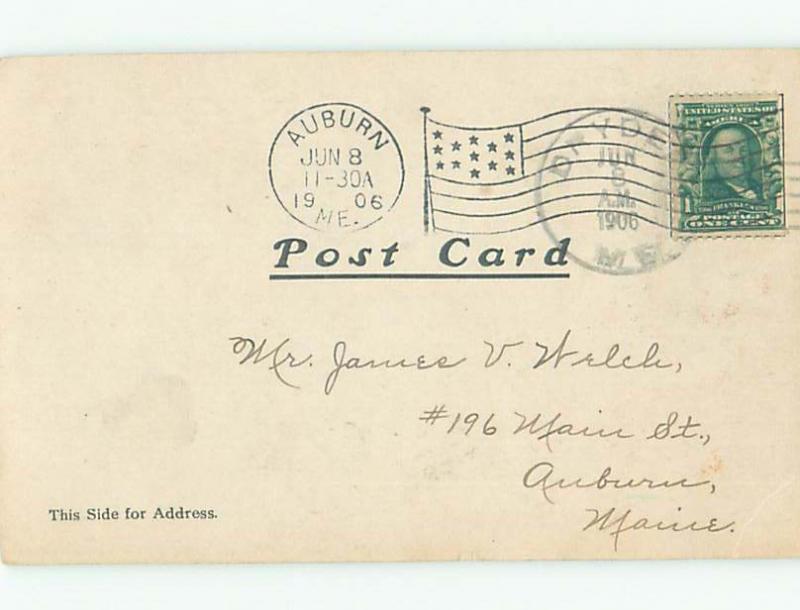 AUBURN
JUN 8
11-30A
19 06
ME.
DRYDEN
JUN
8
A.M.
1906
ME.
UNITED STATES OF
AMERICA
FRANKLIN
1 POSTAGE
ONE CENT
Post Card
Mr. James V. Welch,
#196 Main St.,
Auburn,
Maine.
This Side for Address.